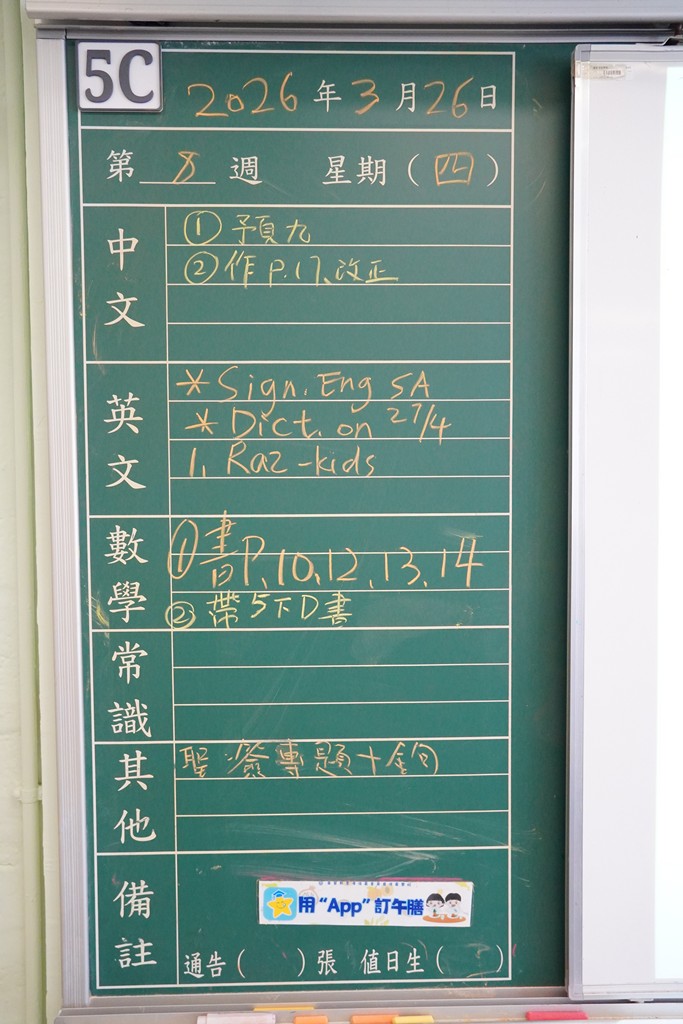 5C
2026年3月26日
第8週 星期(四)
中文
① 預九
② 作 P.17、改正
英文
* Sign. Eng 5A
* Dict. on 27/4
1. Raz-kids
數學
① 書P.10,12,13,14
② 帶5下D書
常識
其他
聖 專題+
備註
用“App”訂午膳
通告( )張 值日生( )